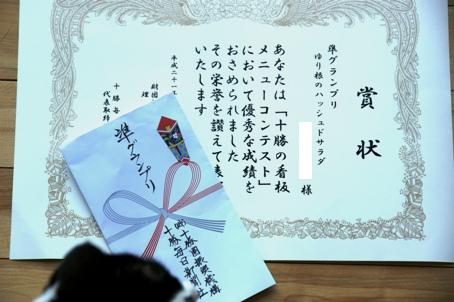 賞状
準グランプリ
ゆり根のハッシュドサラダ
様
あなたは「十勝の看板
メニューコンテスト」
において優秀な成績を
おさめられました
その栄誉を讃えて表
いたします
平成二十一
財団
理
十勝毎
代表取締
準グランプリ
十勝毎日新聞社